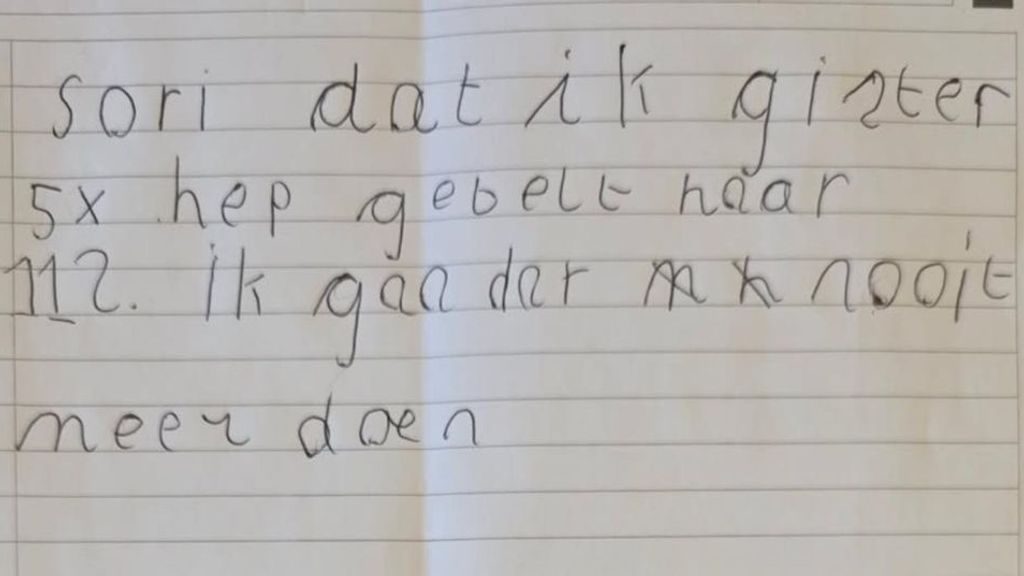 sori dat ik gister
5x hep gebelt naar
112. ik gaa dar nooit
meer doen